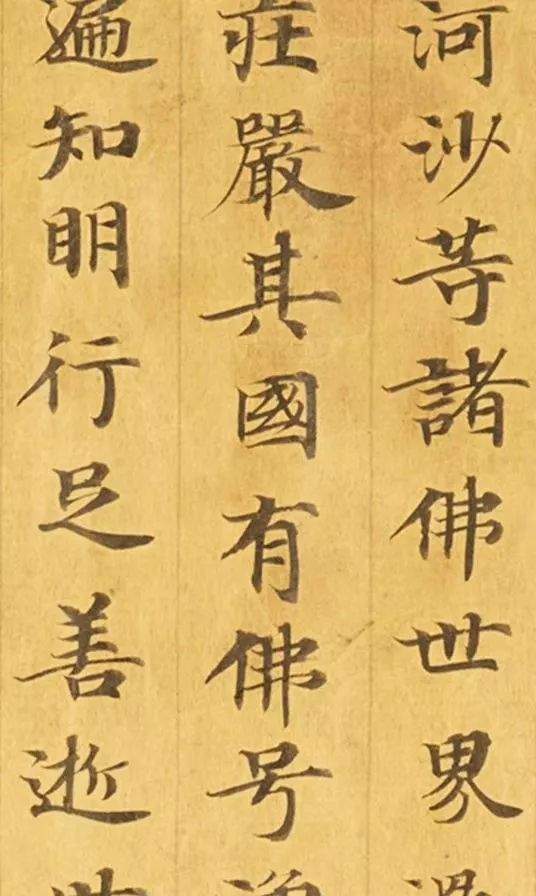 河沙等諸佛世界
莊嚴其國有佛号
遍知明行足善逝